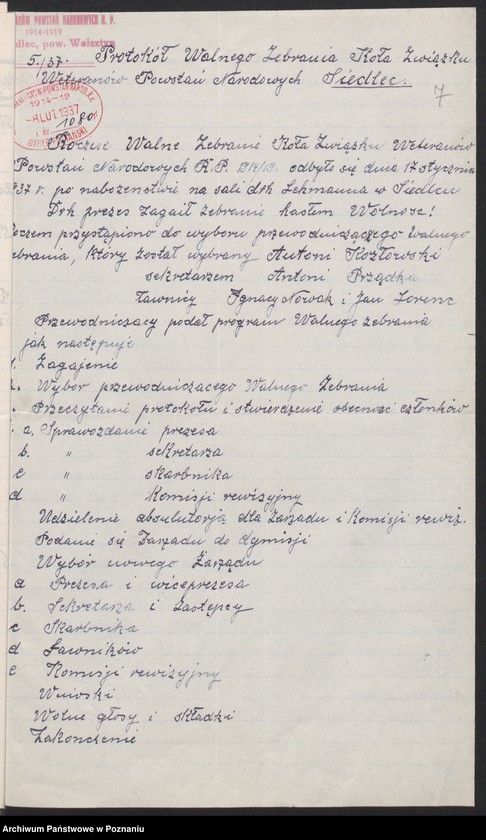 ANÓW POWSTAŃ NARODOWYCH R. P.
1914-1919
dlec, pow. Wolsztyn
5./37. Protokół Walnego Zebrania Koła Związku
Weteranów Powstań Narodowych Siedlec.
7
1914-19
LUT. 1937
1080
Roczne Walne Zebranie Koła Związku Weteranów
Powstań Narodowych R.P. 1914/19. odbyło się dnia 17 stycznia
37 r. po nabożeństwie na sali drh Lehmanna w Siedlcu
Drh prezes zagaił zebranie hasłem Wolność!
oczem przystąpiono do wyboru przewodniczącego walnego
ebrania, który został wybrany Antoni Kozłowski
sekretarzem Antoni Prządka
ławnicy Ignacy Nowak i Jan Lorenc
Przewodniczący podał program Walnego zebrania
jak następuje
Zagajenie
Wybór przewodniczącego Walnego Zebrania
Przeczytanie protokołu i stwierdzenie obecność członków
a. Sprawozdanie prezesa
b. " sekretarza
c " skarbnika
d " Komisji rewizyjny
Udzielenie absulutorją dla Zarządu i Komisji rewiz.
Podanie się Zarządu do dymisji
Wybór nowego Zarządu
a Prezesa i wiceprezesa
b. Sekretarza i Zastępcy
c Skarbnika
d Ławników
e Komisji rewizyjny
Wnioski
Wolne głosy i składki
Zakończenie
Archiwum Państwowe w Poznaniu